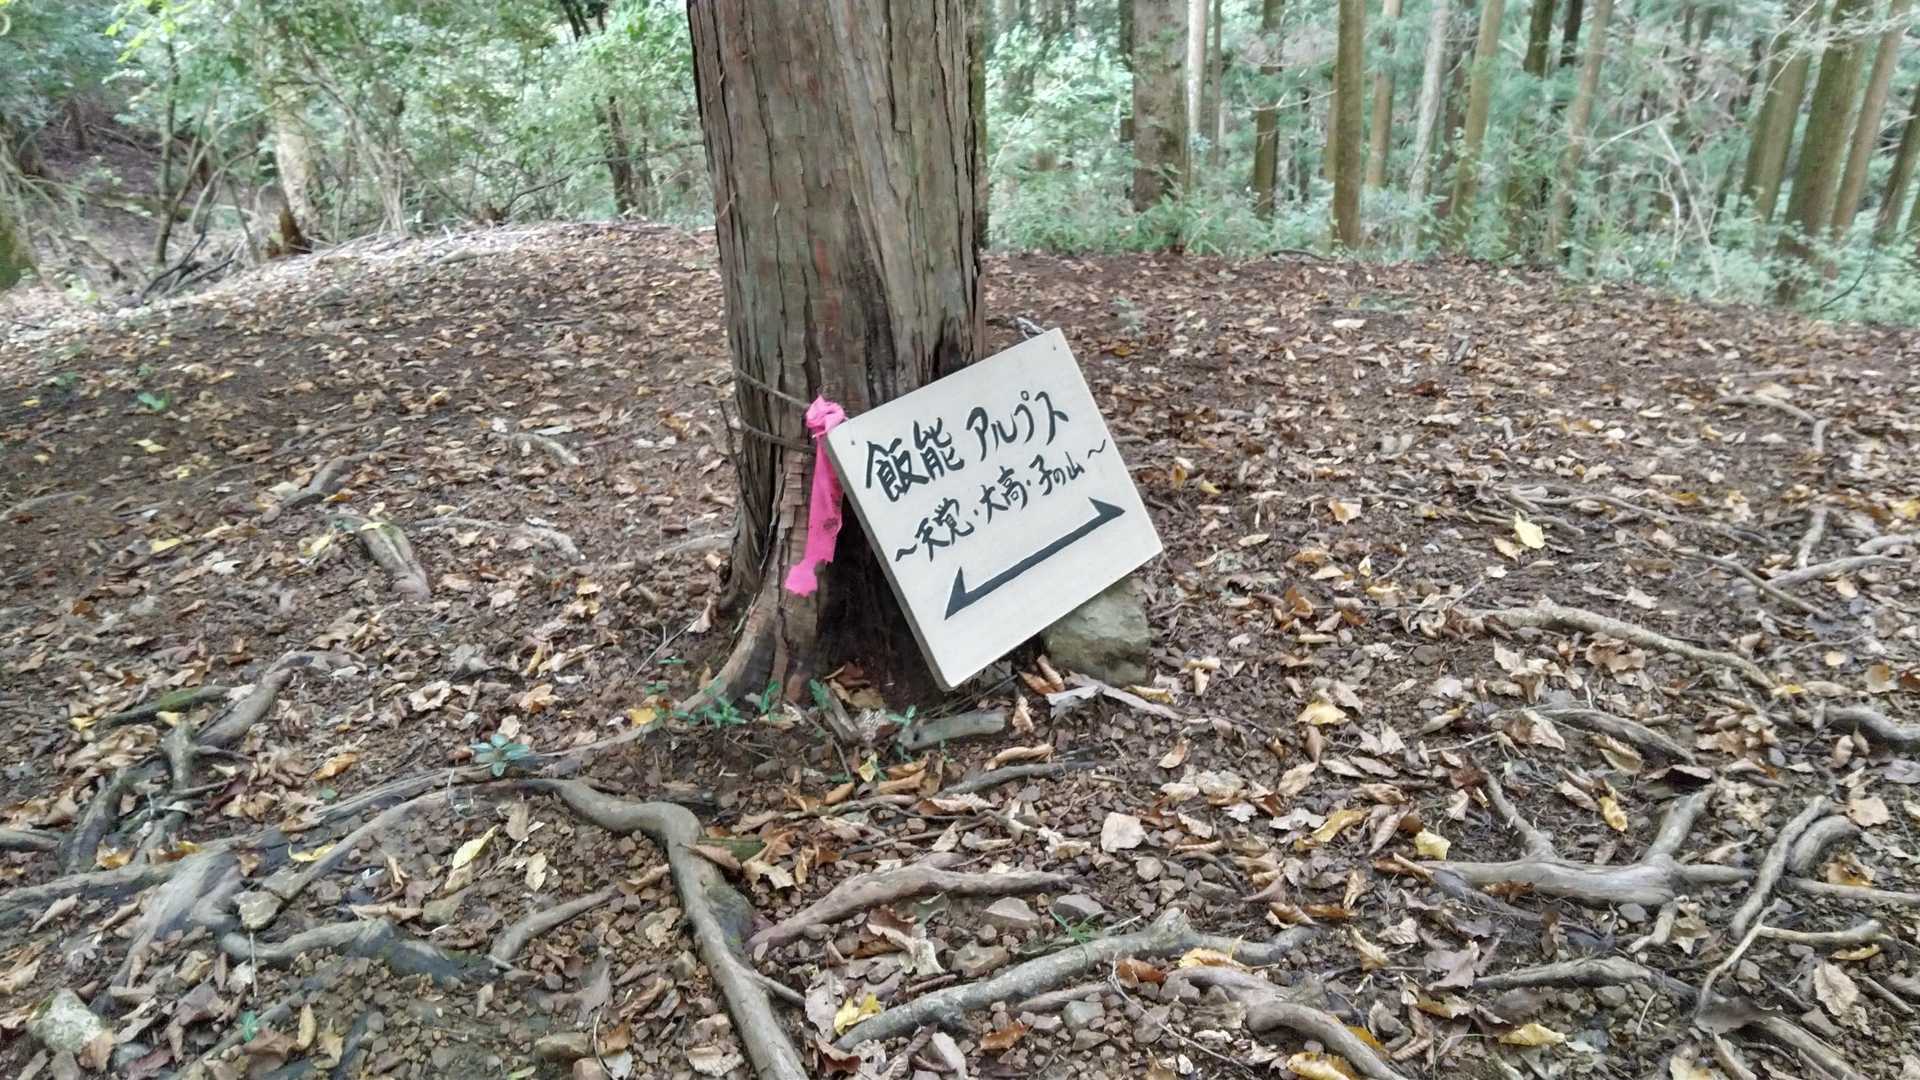 飯能 アルプス
~天覚・大高・子の山~